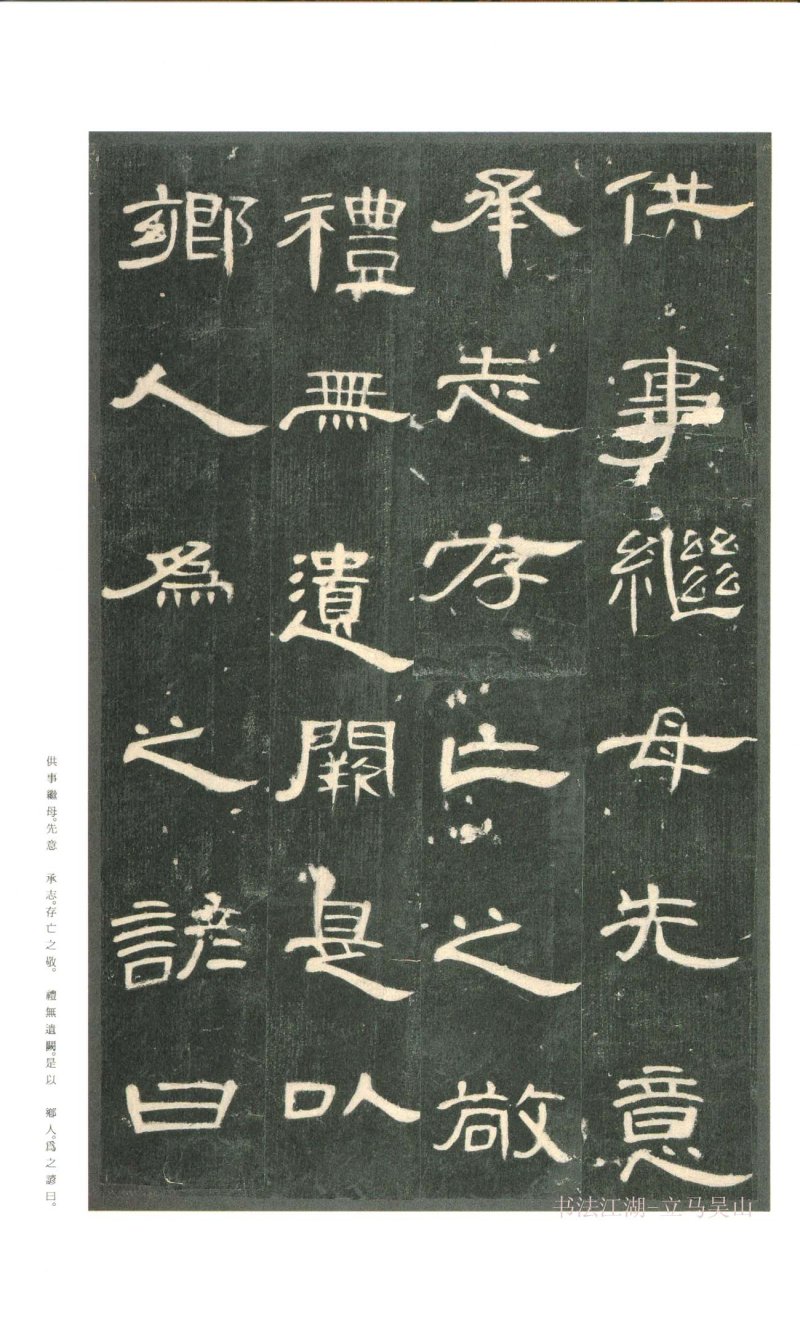 供事繼母先意
承志存亡之敬
禮無遺闕是以
鄉人爲之諺曰
供事繼母。先意　承志。存亡之敬。　禮無遺闕。是以　鄉人。爲之諺曰。
书法江湖-立马吴山